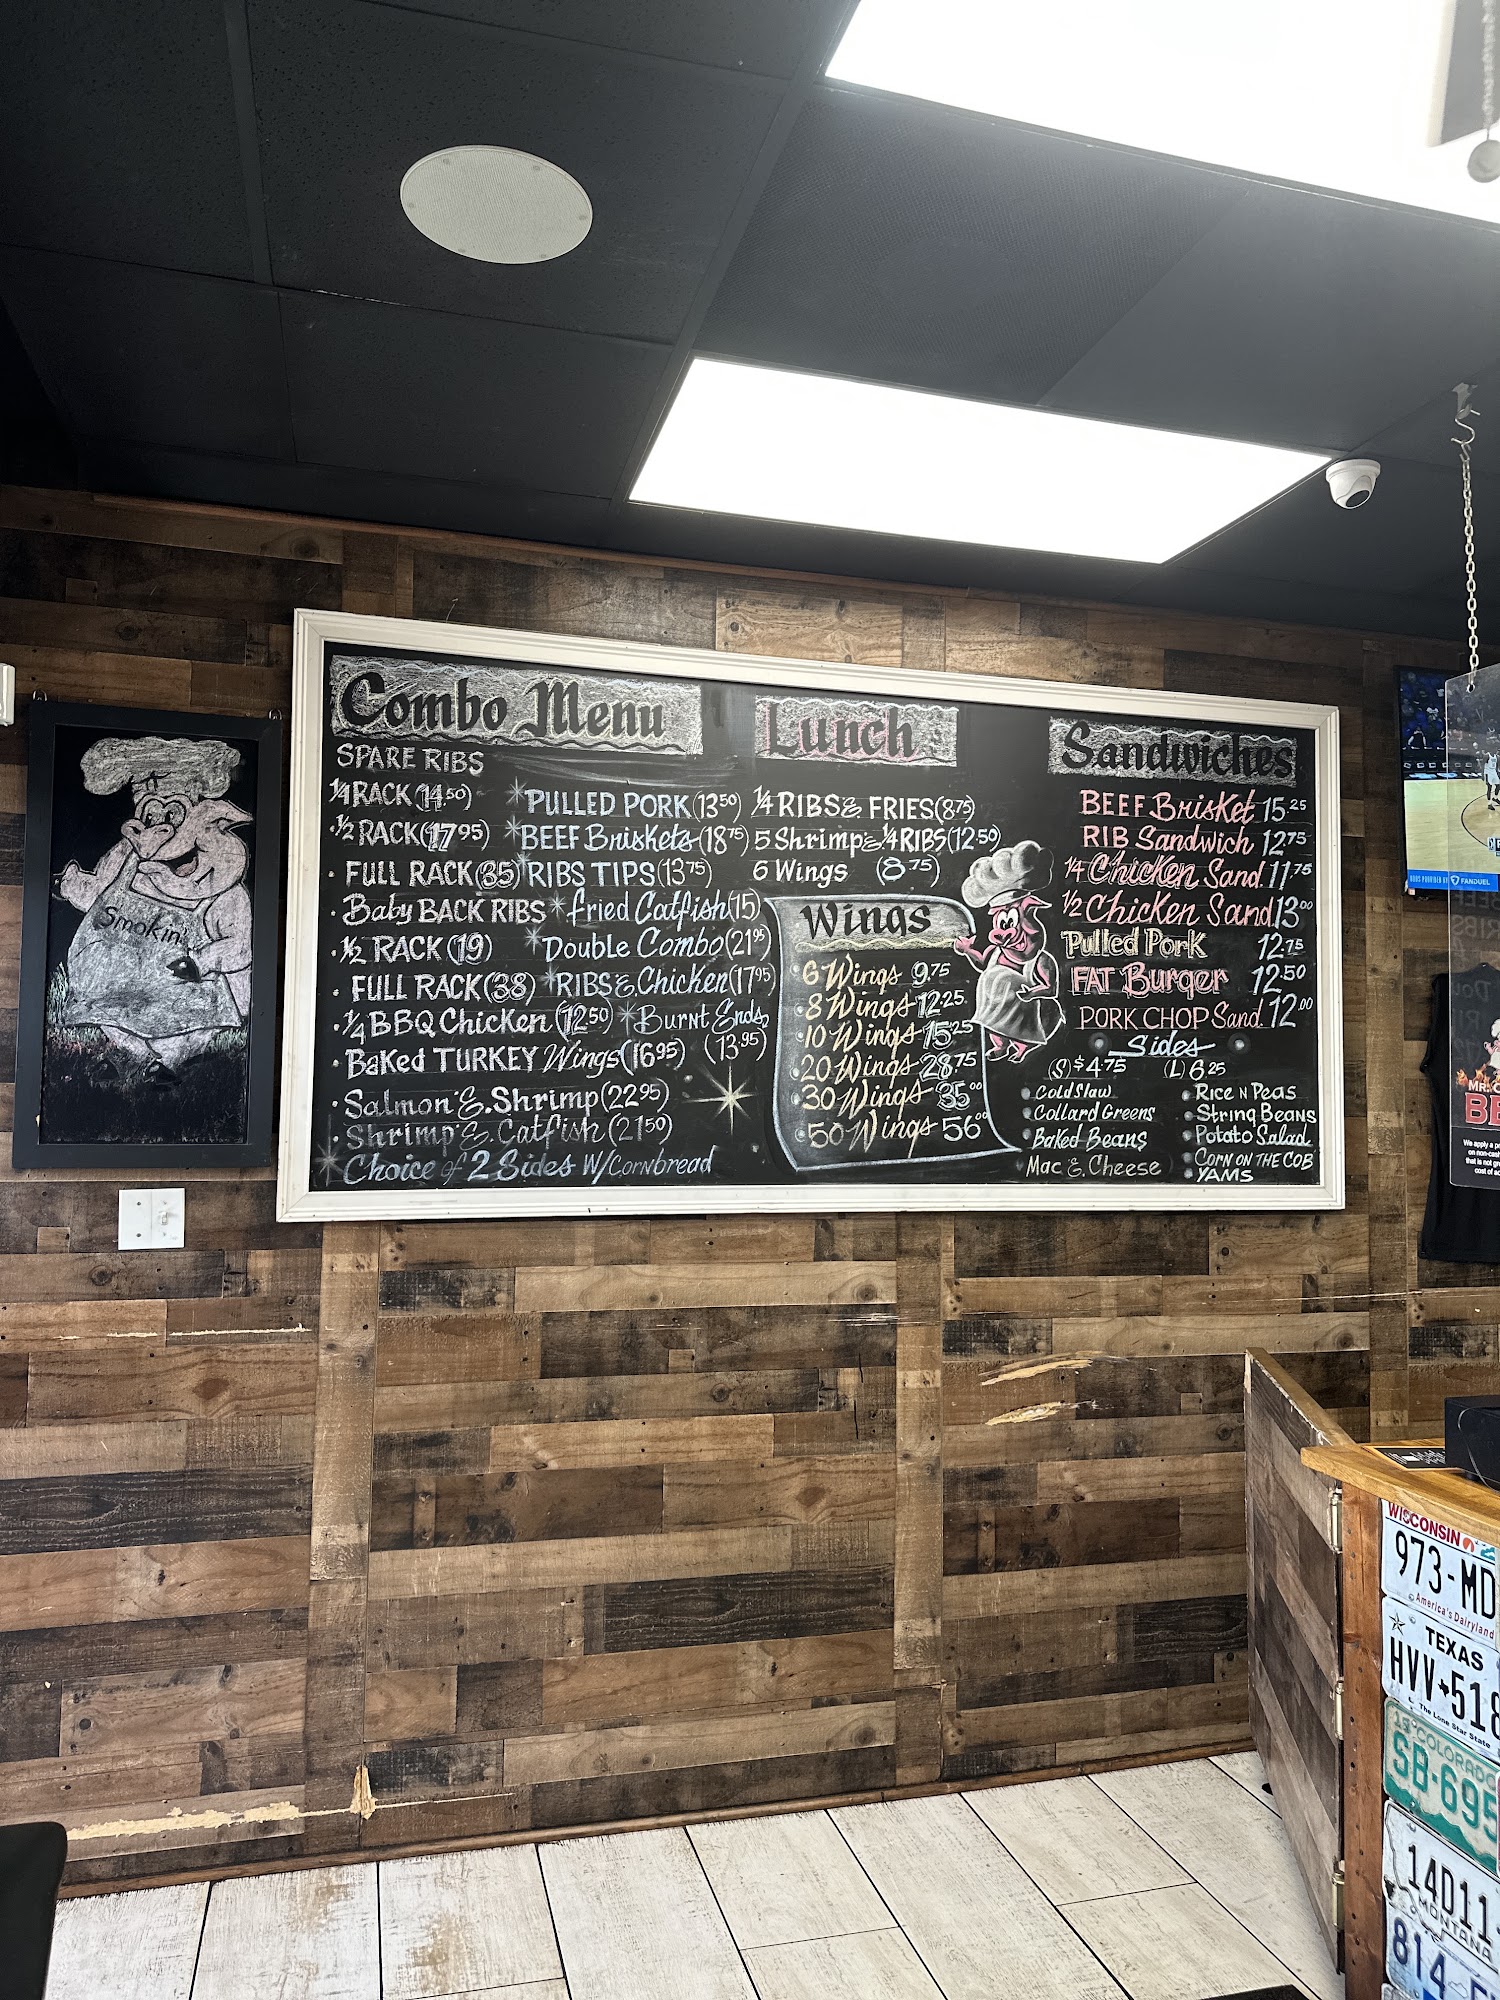 Smokin'
Combo Menu
SPARE RIBS
1/4 RACK (14.50)
1/2 RACK (17.95)
FULL RACK (35)
Baby BACK RIBS
1/2 RACK (19)
FULL RACK (38)
1/4 BBQ Chicken (12.50)
Baked TURKEY Wings (16.95)
Salmon & Shrimp (22.95)
Shrimp & Catfish (21.50)
Choice of 2 Sides W/Cornbread
PULLED PORK (13.50)
BEEF Briskets (18.75)
RIBS TIPS (13.75)
Fried Catfish (15)
Double Combo (21.95)
RIBS & Chicken (17.95)
Burnt Ends
(13.95)
Lunch
1/4 RIBS & FRIES (8.75)
5 Shrimp & 1/4 RIBS (12.50)
6 Wings (8.75)
Wings
6 Wings 9.75
8 Wings 12.25
10 Wings 15.25
20 Wings 28.75
30 Wings 35.00
50 Wings 56.00
Sandwiches
BEEF Brisket 15.25
RIB Sandwich 12.75
1/4 Chicken Sand. 11.75
1/2 Chicken Sand 13.00
Pulled Pork 12.75
FAT Burger 12.50
PORK CHOP Sand. 12.00
Sides
(S) $4.75 (L) 6.25
Cold Slaw
Collard Greens
Baked Beans
Mac & Cheese
Rice N Peas
String Beans
Potato Salad
CORN ON THE COB
YAMS
FANDUEL
MR.
WISCONSIN
973-MD
America's Dairyland
TEXAS
HVV 518
The Lone Star State
COLORADO
SB-695
14D11
MONTANA
814